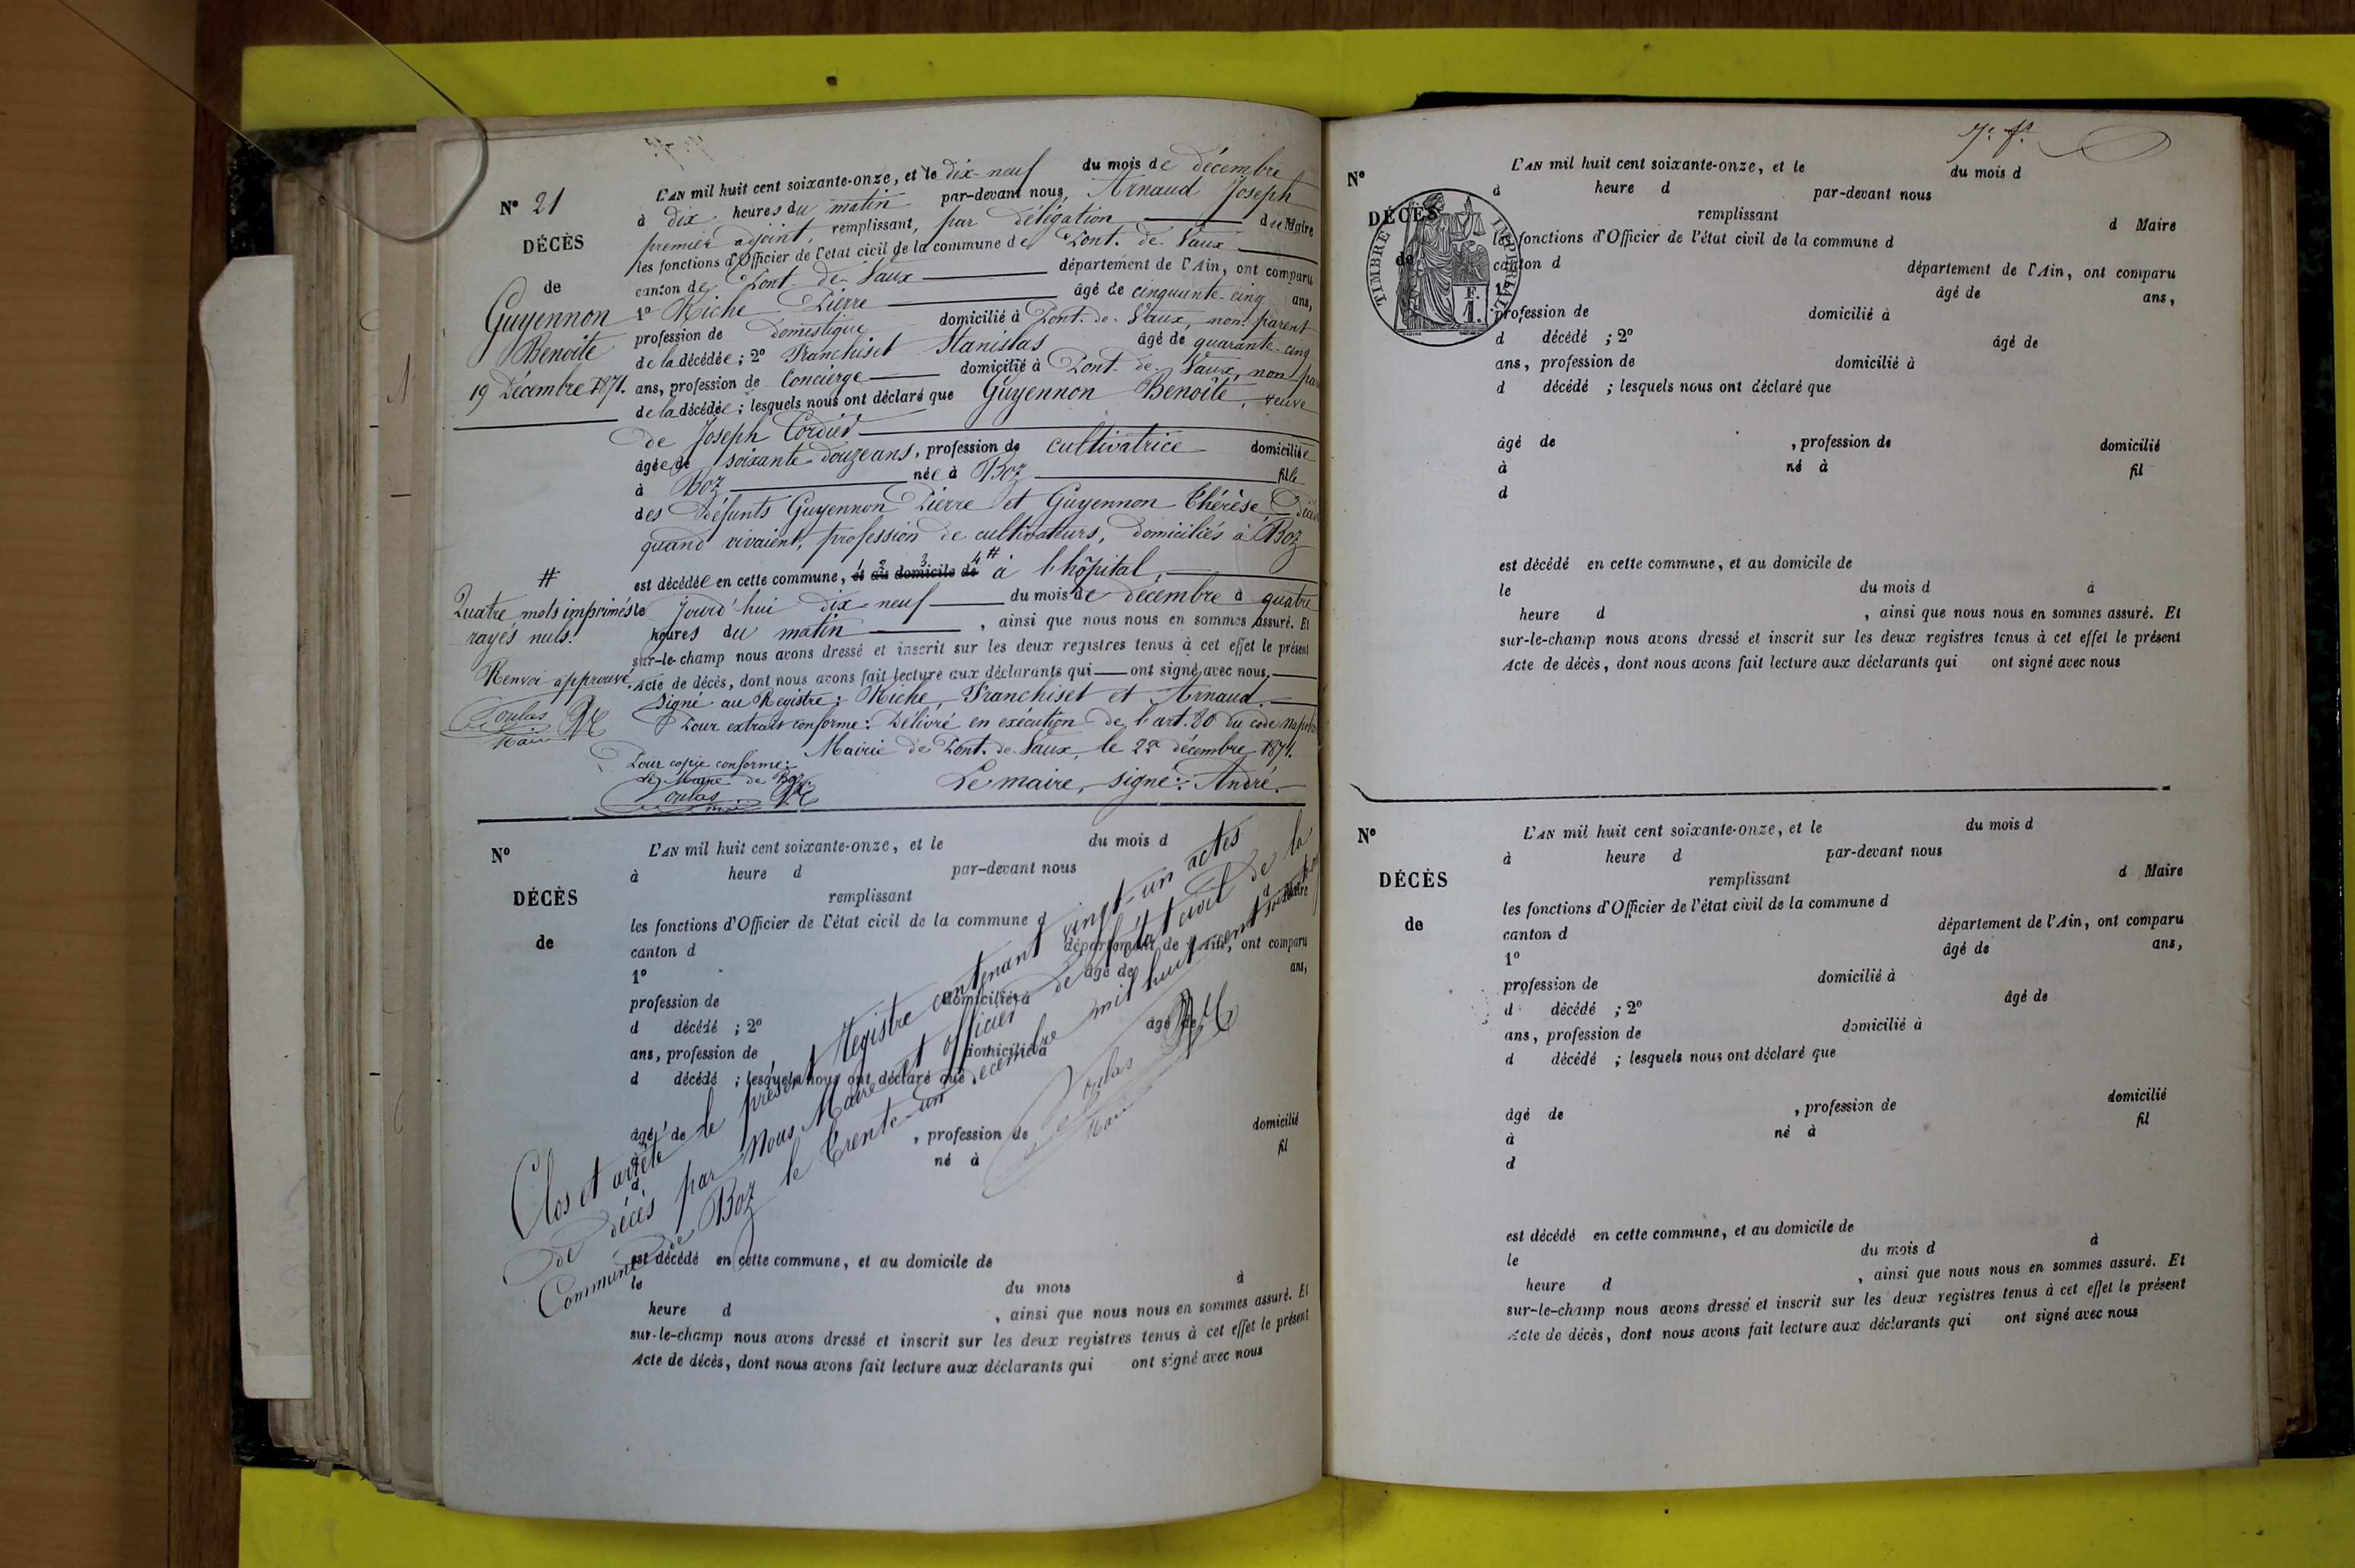 N° 21
DÉCÈS
de
Guyennon
Benoite
19 Décembre 1871.
L'AN mil huit cent soixante-onze, et le dix-neuf du mois de décembre
à dix heures du matin par-devant nous, Arnaud Joseph
premier adjoint, remplissant, par délégation du Maire
les fonctions d'Officier de l'état civil de la commune de Pont-de-Vaux
canton de Pont-de-Vaux département de l'Ain, ont comparu
1° Riche Pierre âgé de cinquante-cinq ans,
profession de domestique domicilié à Pont-de-Vaux, non parent
de la décédée ; 2° Franchiset Stanislas âgé de quarante-cinq
ans, profession de Concierge domicilié à Pont-de-Vaux, non
de la décédée ; lesquels nous ont déclaré que Guyennon Benoîte, veuve
de Joseph Cordier
âgée de soixante-douze ans, profession de cultivatrice domiciliée
à Boz née à Boz fille
des Défunts Guyennon Pierre et Guyennon Thérèse,
quand vivaient, profession de cultivateurs, domiciliés à Boz
est décédée en cette commune, et au domicile de # à l'hôpital,
1 2 3 4
le jourd'hui dix-neuf du mois de décembre à quatre
heures du matin , ainsi que nous nous en sommes assuré. Et
sur-le-champ nous avons dressé et inscrit sur les deux registres tenus à cet effet le présent
Acte de décès, dont nous avons fait lecture aux déclarants qui ont signé avec nous,
Signé au Registre: Riche, Franchiset et Arnaud.
Pour extrait conforme: Délivré en exécution de l'art. 80 du code
Mairie de Pont-de-Vaux, le 22 décembre 1871.
Le maire, signé: André.
Pour copie conforme:
le Maire de Boz
#
Quatre mots imprimés
rayés nuls.
Renvoi approuvé.
Maire
N°
DÉCÈS
de
L'AN mil huit cent soixante-onze, et le du mois d
à heure d par-devant nous
remplissant d Maire
les fonctions d'Officier de l'état civil de la commune d
canton d département de l'Ain, ont comparu
1° âgé de ans,
profession de domicilié à
d décédé ; 2° âgé de
ans, profession de domicilié à
d décédé ; lesquels nous ont déclaré que
âgé de , profession de domicilié
à né à fil
d
est décédé en cette commune, et au domicile de
le du mois à
heure d , ainsi que nous nous en sommes assuré. Et
sur-le-champ nous avons dressé et inscrit sur les deux registres tenus à cet effet le présent
Acte de décès, dont nous avons fait lecture aux déclarants qui ont signé avec nous
Clos et arrêté le présent Registre contenant vingt-un actes
de décès par Nous Maire et officier de l'état civil de la
Commune de Boz le trente-un décembre mil huit cent soixante
Maire
7e fo
N°
DÉCÈS
de
TIMBRE IMPERIAL
F.
1.
L'AN mil huit cent soixante-onze, et le du mois d
à heure d par-devant nous
remplissant d Maire
les fonctions d'Officier de l'état civil de la commune d
canton d département de l'Ain, ont comparu
1° âgé de ans,
profession de domicilié à
d décédé ; 2° âgé de
ans, profession de domicilié à
d décédé ; lesquels nous ont déclaré que
âgé de , profession de domicilié
à né à fil
d
est décédé en cette commune, et au domicile de
le du mois d à
heure d , ainsi que nous nous en sommes assuré. Et
sur-le-champ nous avons dressé et inscrit sur les deux registres tenus à cet effet le présent
Acte de décès, dont nous avons fait lecture aux déclarants qui ont signé avec nous
N°
DÉCÈS
de
L'AN mil huit cent soixante-onze, et le du mois d
à heure d par-devant nous
remplissant d Maire
les fonctions d'Officier de l'état civil de la commune d
canton d département de l'Ain, ont comparu
1° âgé de ans,
profession de domicilié à
d décédé ; 2° âgé de
ans, profession de domicilié à
d décédé ; lesquels nous ont déclaré que
âgé de , profession de domicilié
à né à fil
d
est décédé en cette commune, et au domicile de
le du mois d à
heure d , ainsi que nous nous en sommes assuré. Et
sur-le-champ nous avons dressé et inscrit sur les deux registres tenus à cet effet le présent
Acte de décès, dont nous avons fait lecture aux déclarants qui ont signé avec nous